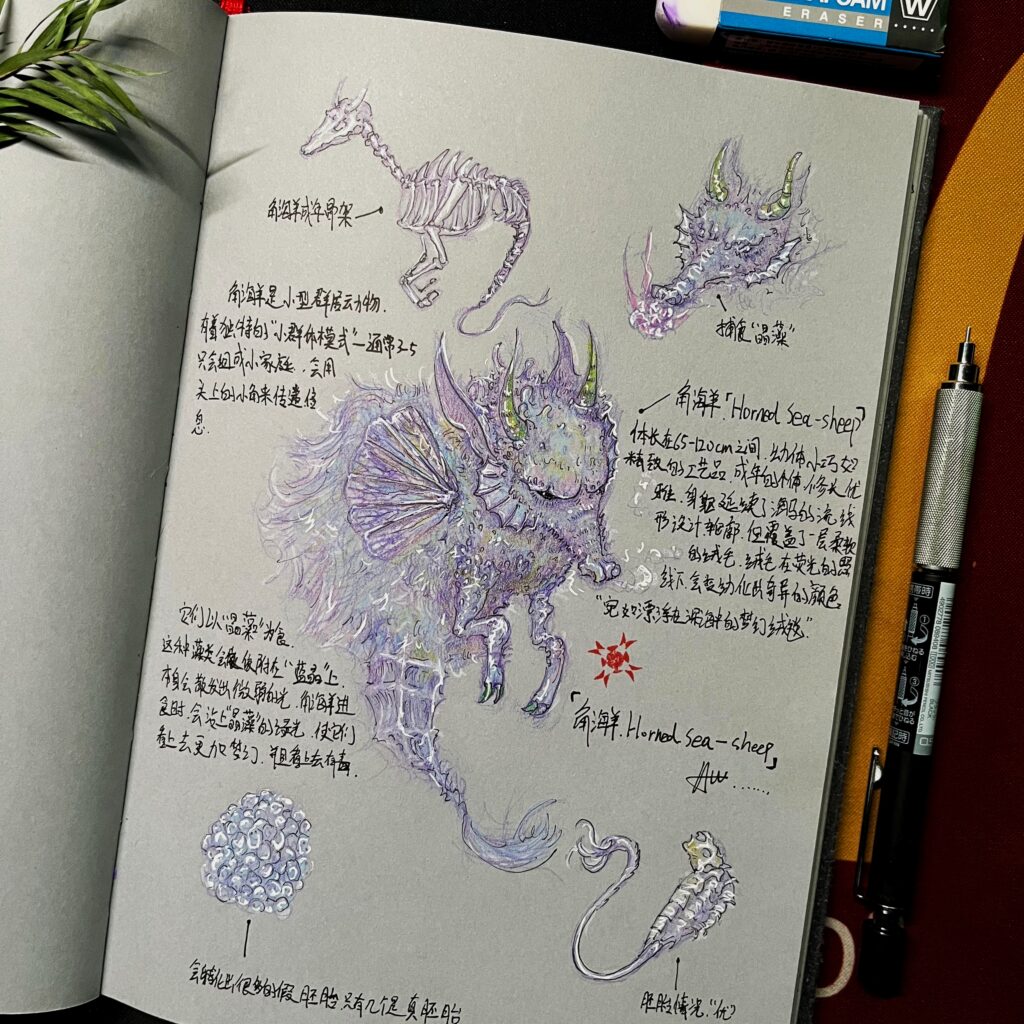 FOAM
W
ERASER
角海羊成年骨架
捕食“晶藻”
角海羊是小型群居动物.
有着独特的“小群体模式”—通常3-5
只会组成小家庭.会用
头上的小角来传递信
息.
角海羊「Horned Sea-sheep」
体长在65-120cm之间.幼体小巧如
精致的工艺品.成年的个体修长优
雅.身躯延续了海马的流线
形设计轮廓.但覆盖了一层柔软
的绒毛.绒毛在荧光的照
线下会变幻化出奇异的颜色
“宛如漂浮在海中的梦幻绒毯”
它们以“晶藻”为食.
这种藻类会依附在“蓝”上.
本身会散发出微弱的光.角海羊进
食时.会沾上“晶藻”的绿光.使它们
看上去更加梦幻.并且看上去有毒.
「角海羊.Horned Sea-sheep」
AW......
会转化出很多的假胚胎只有几个是真胚胎
胚胎情况“优”